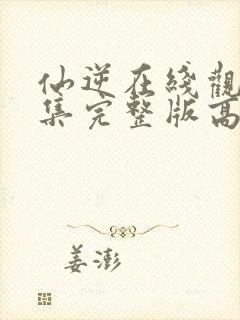 仙逆在綫觀
集完整版高
姜澎